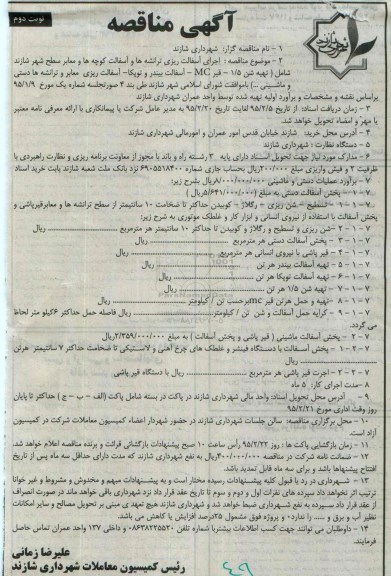 نوبت دوم
آگهی مناقصه
شهرداری شازند
۱ - نام مناقصه گزار: شهرداری شازند
۲ - موضوع مناقصه: اجرای آسفالت ریزی ترانشه ها و آسفالت کوچه ها و معابر سطح شهر شازند
شامل ( تهیه شن ۱/۵ – قیر MC – آسفالت بیندر و توپکا – آسفالت ریزی معابر و ترانشه ها دستی
و ماشینی ...) باموافقت شورای اسلامی شهر شازند طی بند ۴ صورتجلسه شماره یک مورخ ۹۵/۱/۹
براساس نقشه و مشخصات و برآورد اولیه تهیه شده توسط واحد عمران شهرداری شازند
۳ - زمان دریافت اسناد: از تاریخ ۹۵/۲/۵ لغایت تاریخ ۹۵/۲/۲۰ به مدیر عامل شرکت یا پیمانکاری با ارائه معرفی نامه معتبر
با مهر و امضاء تحویل خواهد شد.
۴ - آدرس محل خرید: شازند خیابان قدس امور عمران و امورمالی شهرداری شازند
۵ - دستگاه نظارت: شهرداری شازند
۶ - مدارک مورد نیاز جهت تحویل اسناد دارای پایه ۳ رشته راه و باند با مجوز از معاونت برنامه ریزی و نظارت راهبردی با
ظرفیت ۲ و فیش واریزی مبلغ ۲۰۰/۰۰۰ریال بحساب جاری شماره ۶۹۰۵۵۱۸۴۰۰ نزد بانک ملت شعبه شازند بابت خرید اسناد
۷ - برآورد عملیات دستی و ماشینی ۸/۰۰۰/۰۰۰/۰۰۰ریال بشرح زیر:
۷ - ۱ - پخش آسفالت دستی به مبلغ (۵/۶۴۱/۰۰۰/۰۰۰ریال )
۷ - ۱ - ۱ - تسطیح – شن ریزی – رگلاژ – کوبیدن حداکثر تا ضخامت ۱۰ سانتیمتر از سطح ترانشه ها و معابرقیرپاشی و
پخش آسفالت با استفاده از نیروی انسانی و ابزار کار و غلطک موتوری به شرح زیر:
۷ - ۱ - ۲ - شن ریزی و تسطیح و رگلاژ و کوبیدن تا حداکثر ۱۰ سانتیمتر هر مترمربع ........ ریال
۷ - ۱ - ۳ - پخش آسفالت دستی هر مترمربع ........ ریال
۷ - ۱ - ۴ - قیر پاشی با نیروی انسانی هر مترمربع ........ ریال
۷ - ۱ - ۵ - تهیه آسفالت بیندر هر تن ........ ریال
۷ - ۱ - ۶ - تهیه آسفالت توپکا هر تن ........ ریال
۷ - ۱ - ۷ - تهیه شن ۱/۵ هر تن ........ ریال
۷ - ۱ - ۸ - تهیه و حمل هرتن قیر mcبرحسب تن / کیلومتر ........ ریال
۷ - ۱ - ۹ - کرایه حمل آسفالت و شن تن / کیلومتر........ ریال فاصله حمل حداکثر ۶کیلو متر لحاظ
می گردد.
۷ - ۲ - پخش آسفالت ماشینی ( قیر پاشی و پخش آسفالت ) به مبلغ ۲/۳۵۹/۰۰۰/۰۰۰ریال
۷ - ۲ - ۱ - پخش آسفالت با دستگاه فینشر و غلطک های چرخ آهنی و لاستیکی تا ضخامت حداکثر ۷ سانتیمتر هرتن
........ ریال
۷ - ۲ - ۲ - اجرت قیر پاشی هر مترمربع ........ ریال با دستگاه قیر پاشی
۸ -مدت اجرای کار: ۵ ماه
۹ - آدرس محل تحویل اسناد: واحد مالی شهرداری شازند در پاکت در بسته شامل پاکت (الف – ب – ج ) حداکثر تا پایان
روز وقت اداری مورخ ۹۵/۲/۲۱
۱۰ - محل برگزاری مناقصه: سالن جلسات شهرداری شازند در حضور شهردار اعضاء کمیسیون معاملات شرکت در کمیسیون
آزاد است.
۱۱ - زمان بازگشایی پاکت ها: روز ۹۵/۲/۲۲ رأس ساعت ۱۰ صبح پیشنهادات بازگشائی قرائت و برنده مناقصه اعلام خواهد شد.
۱۲ - ضمانت نامه شرکت در مناقصه ۴۰۰/۰۰۰/۰۰۰ریال به نفع شهرداری شازند که مدت دارای حداقل سه ماه پس از تاریخ
افتتاح پیشنهادها باشد و برای سه ماه قابل تمدید باشد.
۱۳ - شهرداری در رد یا قبول کلیه پیشنهادات رسیده مختار است و به پیشنهادات مبهم و مخدوش و مشروط و غیر خوانا
ترتیب اثر نخواهد داد سپرده های نفرات اول و دوم و سوم تا تاریخ عقد قرار داد نزد شهرداری باقی خواهد ماند در صورت انصراف
از عقد قرار داد سپرده به نفع شهرداری ضبط خواهد شد و شهرداری شازند هیچ تعهدی مبنی بر تحویل مصالح و سایر امکانات
نظیر آب و برق و ..... را ندارد و پروژه فوق مشمول ۲۵درصد افزایش یا کاهش می باشد.
۱۴ - داوطلبان می توانند جهت کسب اطلاعات بیشتربا شماره تلفن ۰۸۶۳۸۲۲۵۵۲۰ و داخلی ۱۳۷ واحد عمران تماس حاصل
فرمایند.
علیرضا زمانی
رئیس کمیسیون معاملات شهرداری شازند